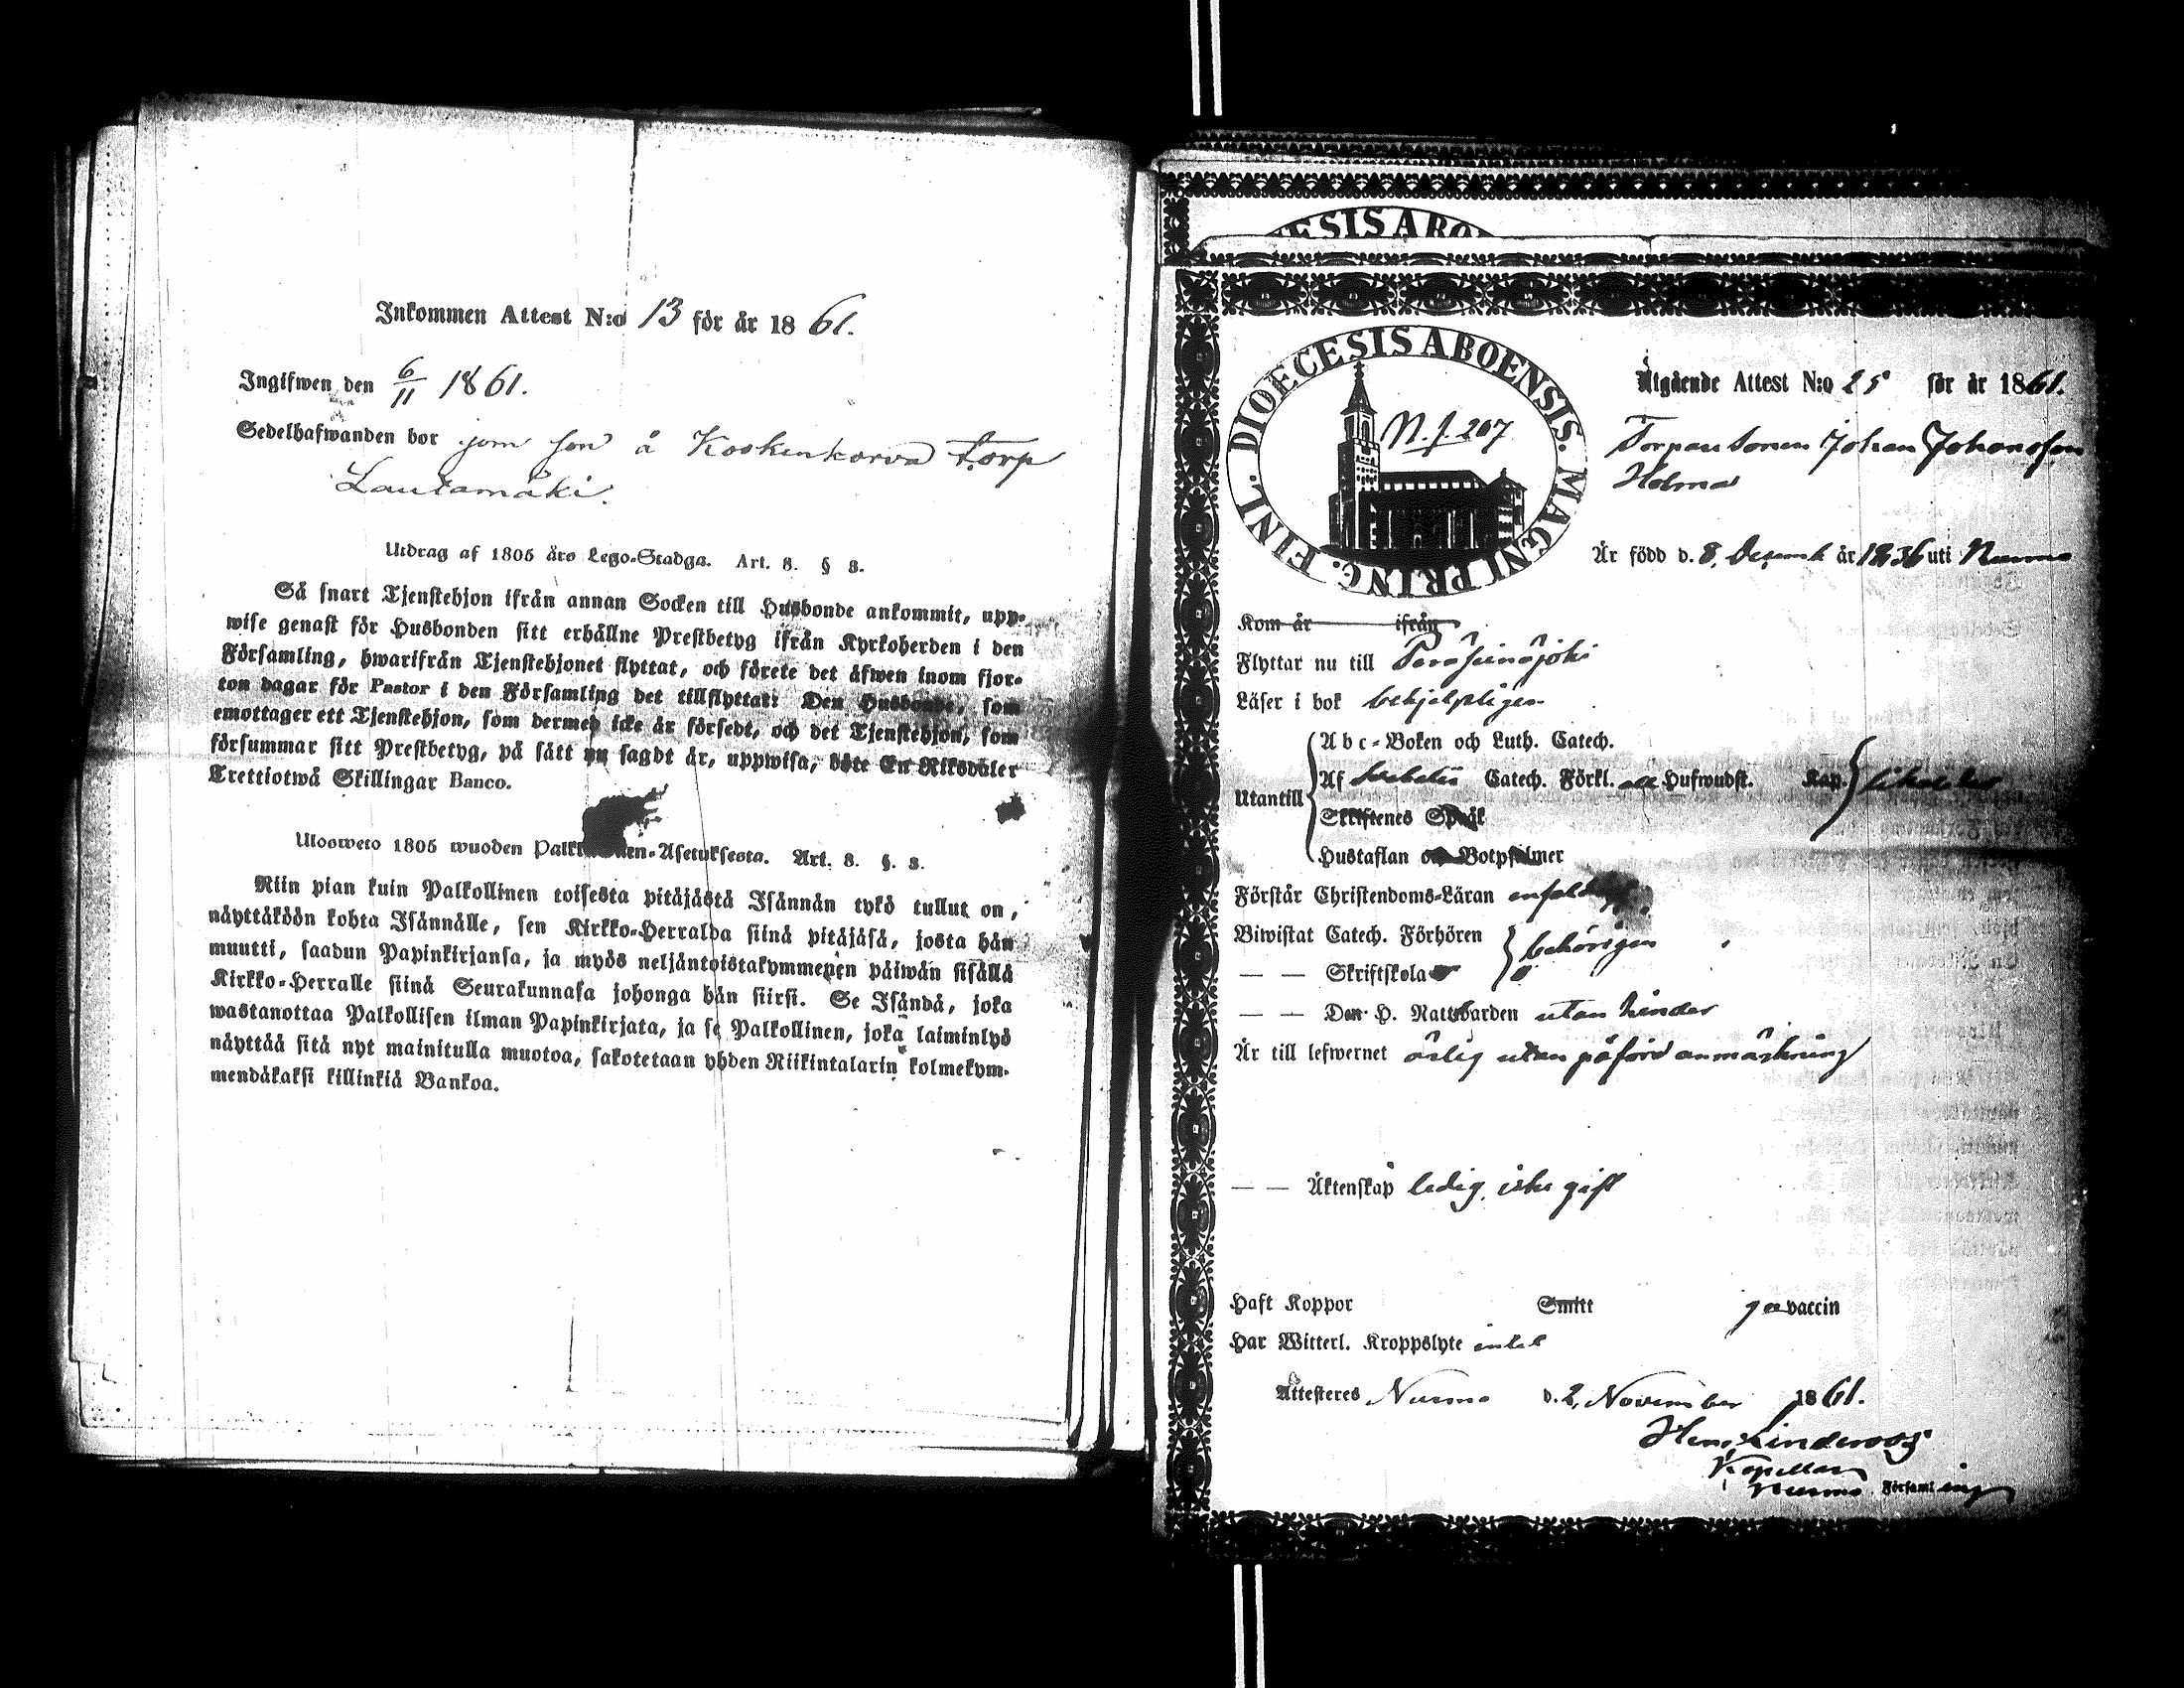 Inkommen Attest N:o 13 för år 18 61.
Ingifwen den 6/11 1861.
Sedelhafwanden bor som son å Koskenkorva torp
Lautamäki.
Utdrag af 1805 års Lego-Stadga. Art. 8. § 8.
Så snart Tjenstehjon ifrån annan Socken till Husbonde ankommit, upp-
wise genast för Husbonden sitt erhållne Prestbetyg ifrån Kyrkoherden i den
Församling, hwarifrån Tjenstehjonet flyttat, och förete det äfwen inom fjor-
ton dagar för Pastor i den Församling det tillflyttat: Den Husbonde, som
emottager ett Tjenstehjon, som dermed icke är försedt, och det Tjenstehjon, som
försummar sitt Prestbetyg, på sätt nu sagdt är, uppwisa, böte En Riksdaler
Trettiotwå Skillingar Banco.
Ulosweto 1805 wuoden Palkollisten-Asetuksesta. Art. 8. §. 8.
Niin pian kuin Palkollinen toisesta pitäjästä Isännän tykö tullut on,
näyttäköön kohta Isännälle, sen Kirkko-Herralda siinä pitäjäsä, josta hän
muutti, saadun Papinkirjansa, ja myös neljäntoistakymmenen päiwän sisällä
Kirkko-Herralle siinä Seurakunnasa johonga hän siirsi. Se Isändä, joka
wastanottaa Palkollisen ilman Papinkirjata, ja se Palkollinen, joka laiminlyö
näyttää sitä nyt mainitulla muotoa, sakotetaan yhden Riikintalarin kolmekym-
mendäkaksi killinkiä Bankoa.
ESIS ABO
DIOECESIS ABOENSIS. MAGNI PRINC. FINL.
N. f. 207
Utgående Attest N:o 25 för år 1861.
Torpare sonen Johan Johansson
Holma
Är född d. 8. Decemb år 1836 uti Nurmo
Kom år ifrån
Flyttar nu till Peräseinäjoki
Läser i bok behjelpligen
Abc-Boken och Luth. Catech.
Utantill Af Svebelii Catech. Förkl. alla Hufwudst. Kap.
Skriftenes Språk
Hustaflan och Botpsalmer
Förstår Christendoms-Läran
Biwistat Catech. Förhören behörigen
— — Skriftskola
— — Den H. Nattwarden utan hinder
Är till lefwernet ärlig utan påförd anmärkning
— — Äktenskap ledig icke gift
Haft Koppor Smitt vaccin
Har Witterl. Kroppslyte intet
Attesteres Nurmo d. 2, November 1861.
Henr Lindroos
Kapellan
Nurmo Församling